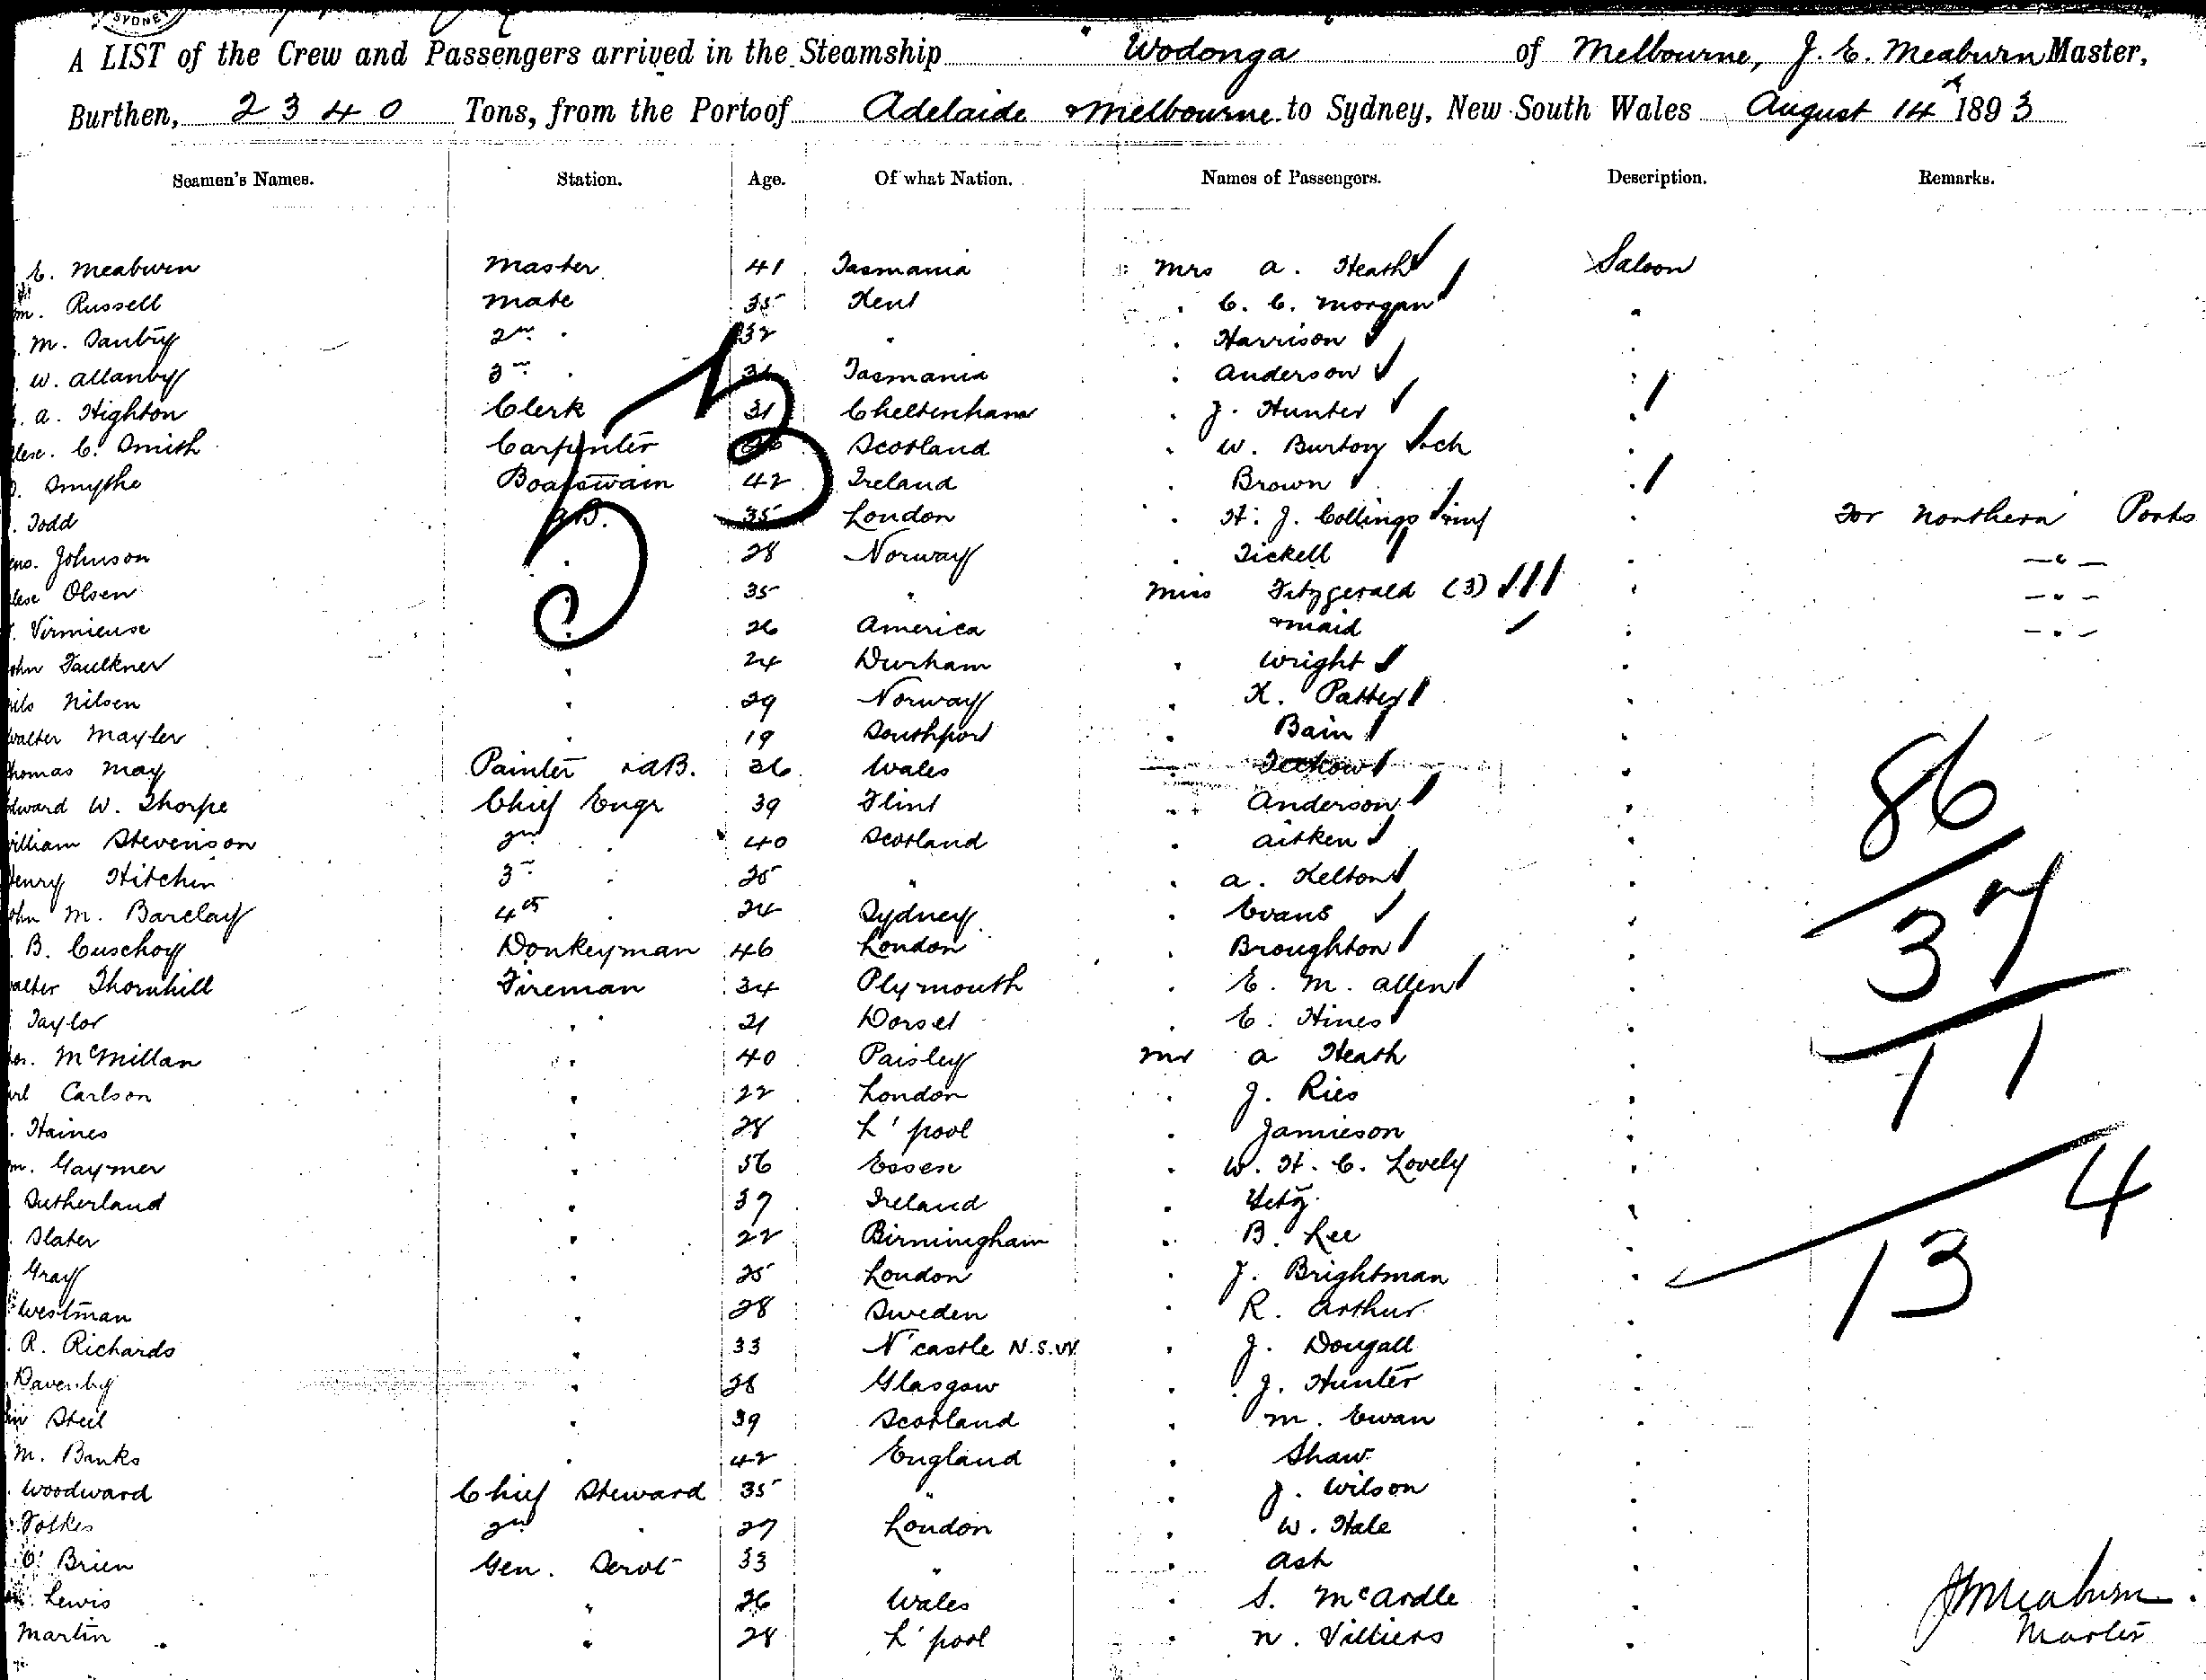 SYDNEY
A LIST of the Crew and Passengers arrived in the Steamship Wodonga of Melbourne, J. E. Meaburn Master,
Burthen, 2340 Tons, from the Port of Adelaide & Melbourne to Sydney, New South Wales August 14th 1893
Seamen's Names. Station. Age. Of what Nation. Names of Passengers. Description. Remarks.
E. Meaburn Master 41 Tasmania Mrs A. Heath Saloon
m. Russell Mate 35 Kent " C. C. Morgan "
M. 2nd " 32 " " Harrison "
W. Allanby 3rd " Tasmania " Anderson "
A. Highton Clerk 31 Cheltenham " J. Hunter "
C. Smith Carpenter Scotland " W. Burton & ch "
Smythe Boatswain 42 Ireland " Brown "
Todd A.B. 35 London " H. J. Collings & inf " For Northern Ports
Johnson " 28 Norway " Tickell " - " -
Olsen " 35 " Miss Fitzgerald (3) " - " -
" 26 America & maid " - " -
ohn Faulkner " 24 Durham " Wright "
ils Nilsen " 29 Norway " K. "
Walter Mayler " 19 Southport " Bain "
Thomas May Painter & A.B. 36 Wales " "
dward W. Thorpe Chief Engr 39 Flint " Anderson "
William Stevenson 2nd " 40 Scotland " Aitken "
Henry Hitchin 3rd " 25 " " A. Kelton "
ohn M. Barclay 4th " 24 Sydney " Evans "
B. Donkeyman 46 London " Broughton "
alter Thornhill Fireman 34 Plymouth " E. M. Allen "
Taylor " 21 Dorset " E. Hines "
McMillan " 40 Paisley Mr A Heath "
arl Carlson " 22 London " J. Ries "
Haines " 28 L'pool " Jamieson "
m. Gaymer " 56 Essex " W. H. C. Lovely "
Sutherland " 37 Ireland " "
Slater " 22 Birmingham " B. Lee "
Gray " 25 London " J. Brightman "
Westman " 28 Sweden " R. Arthur "
R. Richards " 33 N'castle N.S.W. " J. Dougall "
" 28 Glasgow " J. Hunter "
" 39 Scotland " M. Ewan "
M. Banks " 42 England " Shaw "
Woodward Chief Steward 35 " " J. Wilson "
2nd " 27 London " W. Hale "
O'Brien Gen. Servt 33 " " Ash "
Lewis " 26 Wales " S. McArdle "
Martin " 28 L'pool " N. Villiers "
53
86
37
11
4
13
J E Meaburn
Master